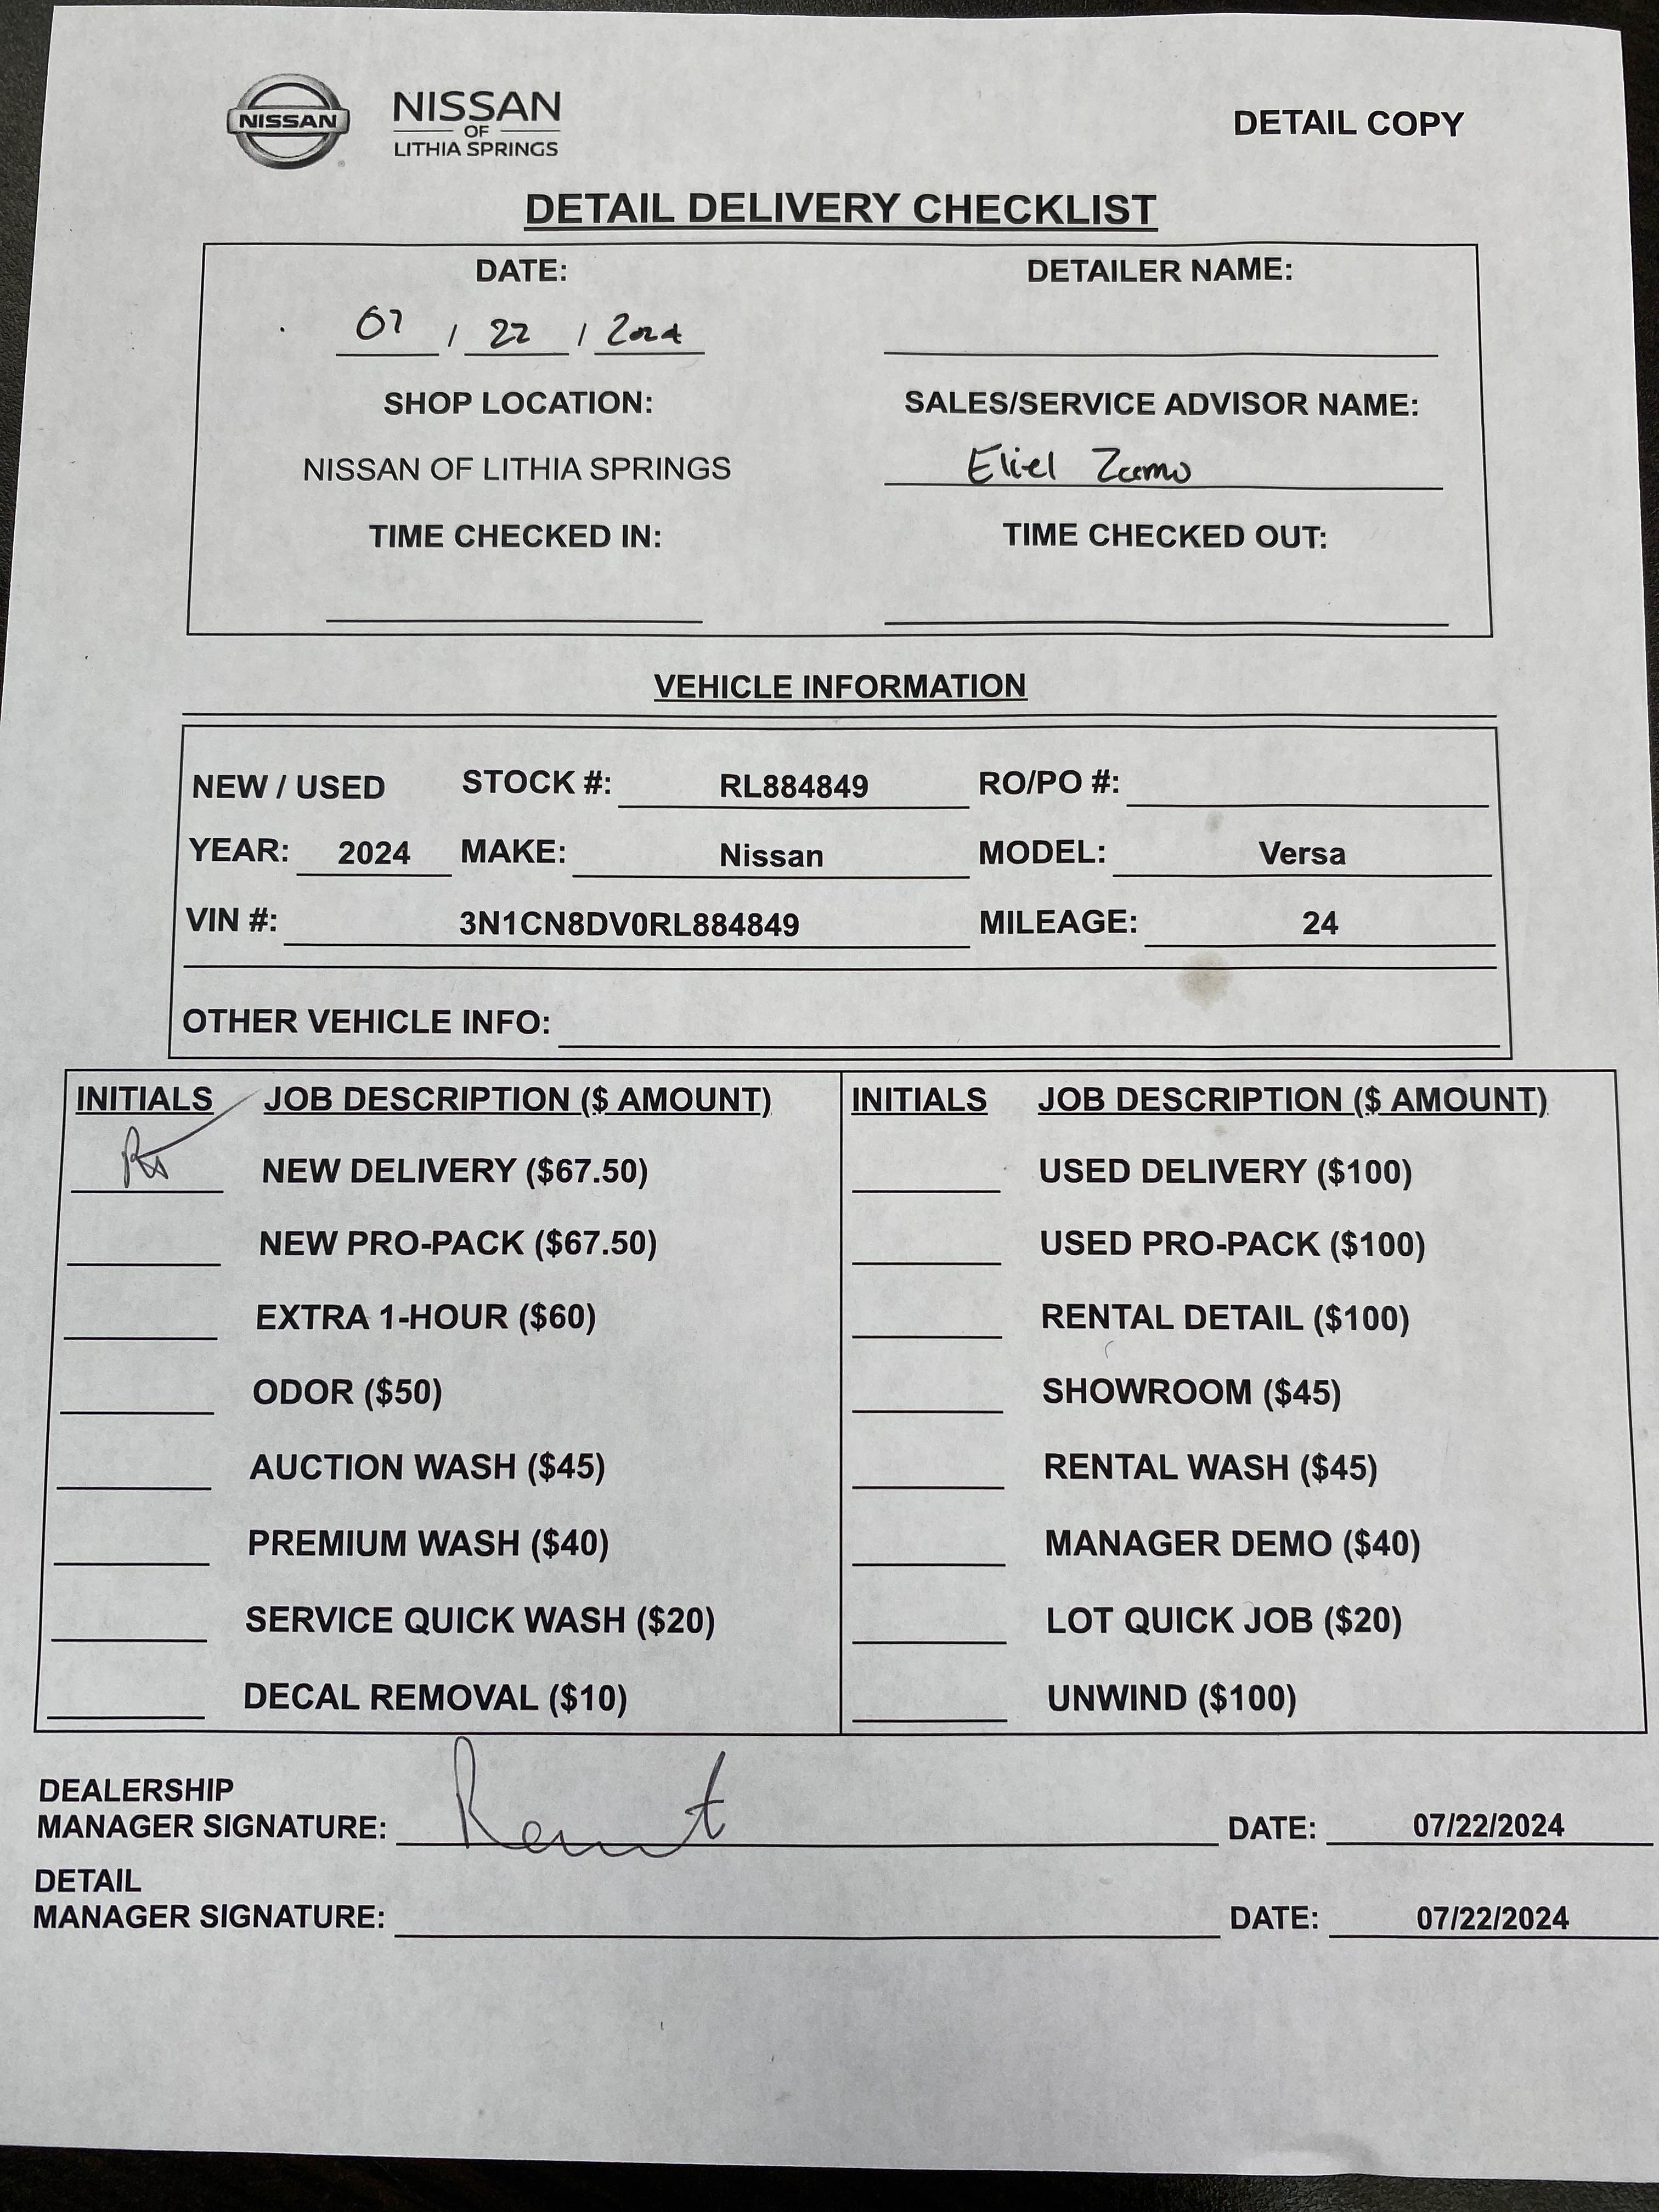 NISSAN
NISSAN
OF
LITHIA SPRINGS
DETAIL COPY
DETAIL DELIVERY CHECKLIST
DATE: DETAILER NAME:
07 / 22 / 2024
SHOP LOCATION: SALES/SERVICE ADVISOR NAME:
NISSAN OF LITHIA SPRINGS Eliel
TIME CHECKED IN: TIME CHECKED OUT:
VEHICLE INFORMATION
NEW / USED STOCK #: RL884849 RO/PO #:
YEAR: 2024 MAKE: Nissan MODEL: Versa
VIN #: 3N1CN8DV0RL884849 MILEAGE: 24
OTHER VEHICLE INFO:
INITIALS JOB DESCRIPTION ($ AMOUNT)
NEW DELIVERY ($67.50)
NEW PRO-PACK ($67.50)
EXTRA 1-HOUR ($60)
ODOR ($50)
AUCTION WASH ($45)
PREMIUM WASH ($40)
SERVICE QUICK WASH ($20)
DECAL REMOVAL ($10)
INITIALS JOB DESCRIPTION ($ AMOUNT)
USED DELIVERY ($100)
USED PRO-PACK ($100)
RENTAL DETAIL ($100)
SHOWROOM ($45)
RENTAL WASH ($45)
MANAGER DEMO ($40)
LOT QUICK JOB ($20)
UNWIND ($100)
DEALERSHIP
MANAGER SIGNATURE: DATE: 07/22/2024
DETAIL
MANAGER SIGNATURE: DATE: 07/22/2024